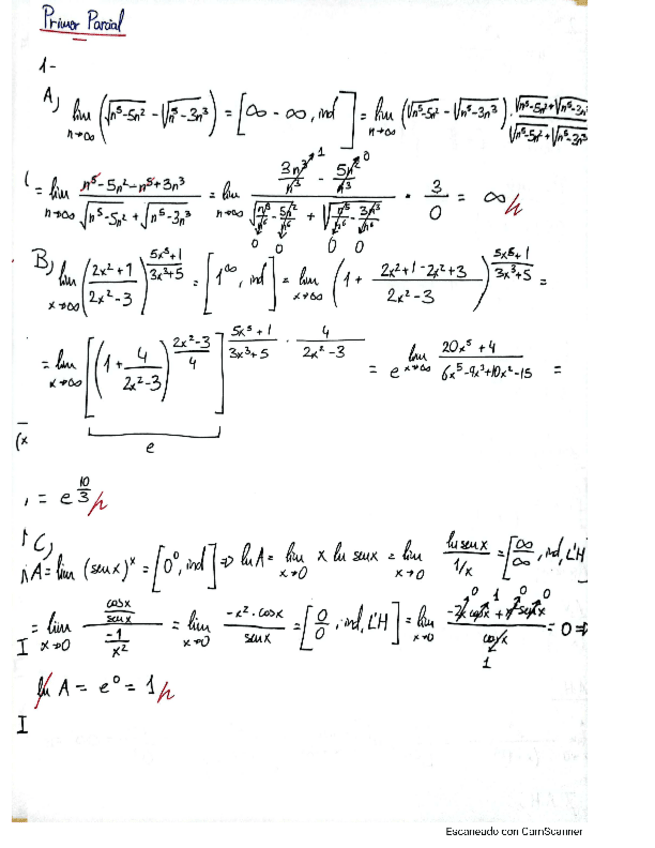 Primer Parcial
1-
A) lim n→∞ (√n⁵-5n² - √n⁵-3n³) = [∞ - ∞, ind] = lim n→∞ (√n⁵-5n² - √n⁵-3n³) · (√n⁵-5n² + √n⁵-3n³)/(√n⁵-5n² + √n⁵-3n³)
= lim n→∞ (n⁵-5n²-n⁵+3n³)/(√n⁵-5n² + √n⁵-3n³) = lim n→∞ (3n³/n³ - 5n²/n³)/(√n⁵/n⁶ - 5n²/n⁶ + √n⁵/n⁶ - 3n³/n⁶) · 3/0 = ∞
B) lim x→∞ ((2x²+1)/(2x²-3))^((5x⁵+1)/(3x³+5)) = [1^∞, ind] = lim x→∞ (1 + (2x²+1-2x²+3)/(2x²-3))^((5x⁵+1)/(3x³+5)) =
= lim x→∞ [(1 + 4/(2x²-3))^((2x²-3)/4)]^((5x⁵+1)/(3x³+5) · 4/(2x²-3)) = e^(lim x→∞ (20x⁵+4)/(6x⁵-9x³+10x²-15)) =
e
= e^(10/3)
C)
A = lim (sen x)^x = [0⁰, ind] ⇒ ln A = lim x→0 x ln sen x = lim x→0 (ln sen x)/(1/x) = [∞/∞, ind, L'H
= lim x→0 (cos x/sen x)/(-1/x²) = lim x→0 (-x² · cos x)/(sen x) = [0/0, ind, L'H] = lim x→0 (-2x cos x + x² sen x)/(cos x) = 0 ⇒
ln A = e⁰ = 1
Escaneado con CamScanner